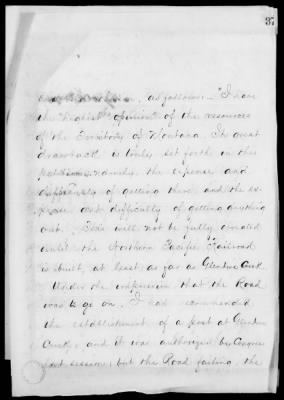 87
as follows:— "I have
the highest opinion of the resources
of the Territory of Montana. Its great
drawback is truly set forth in this
petition, namely, the expense and
difficulty of getting there, and the ex-
pense and difficulty of getting anything
out. This will not be fully avoided
until the Northern Pacific Railroad
is built, at least as far as Glendive Creek.
Under the impression that the Road
was to go on, I had recommended
the establishment of a post at Glendive
Creek, and it was authorized by Congress
last session; but the Road failing, the